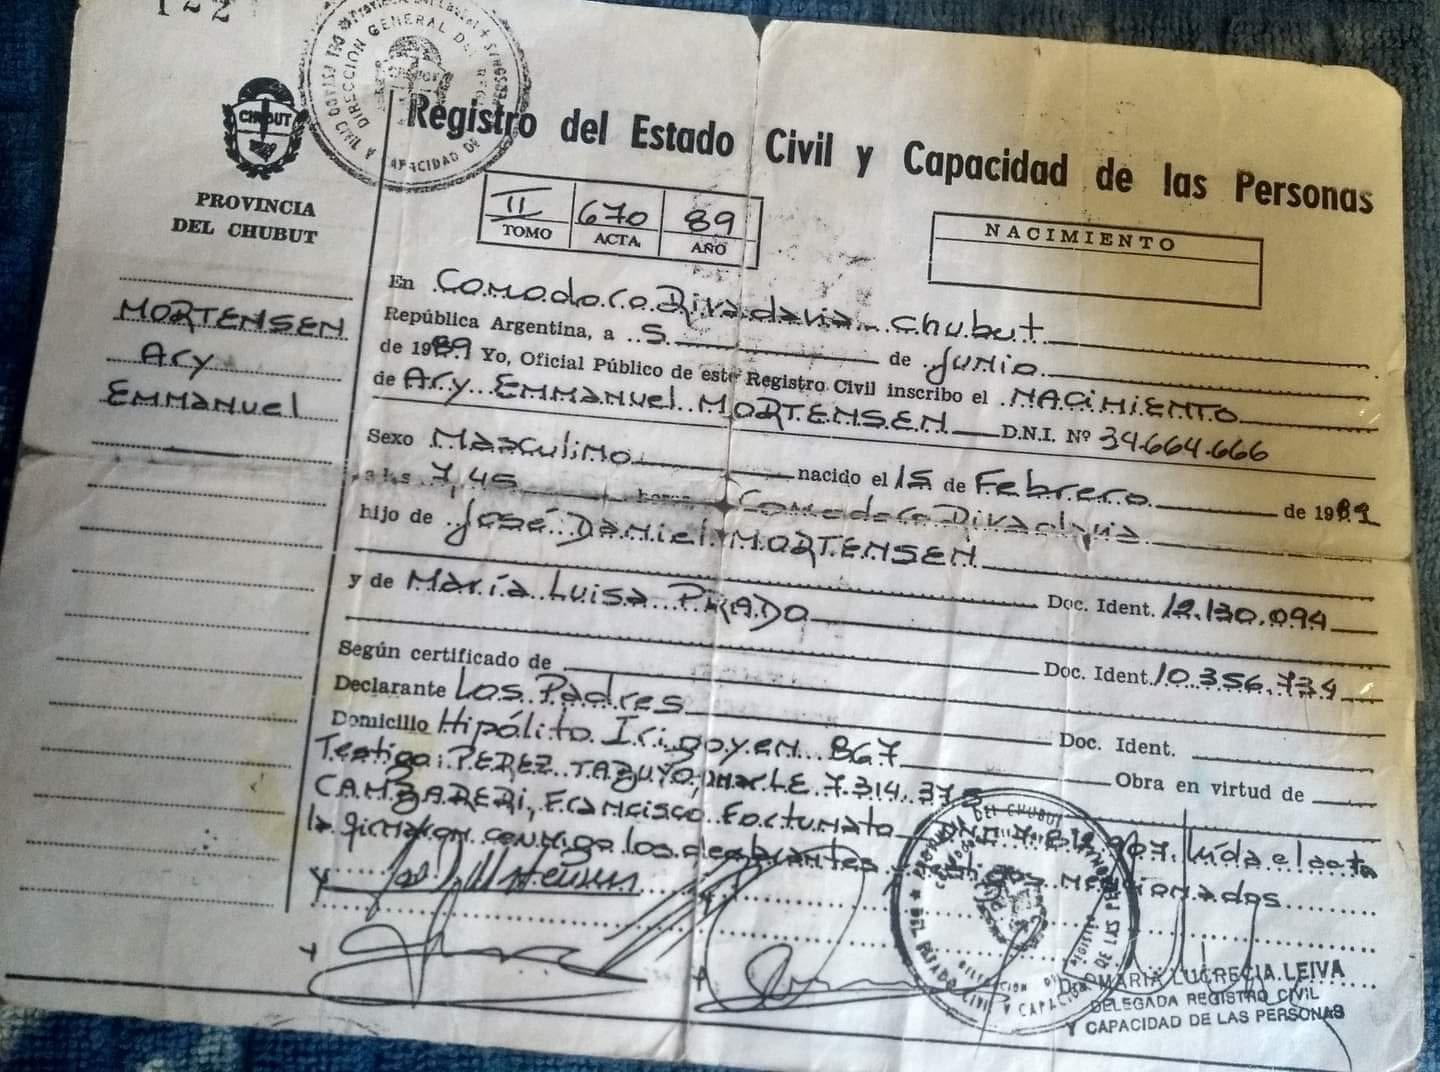 122
DIRECCION GENERAL DEL REG
CAPACIDAD DE
CHUBUT
PROVINCIA
DEL CHUBUT
Registro del Estado Civil y Capacidad de las Personas
II 670 89
TOMO ACTA AÑO
NACIMIENTO
MORTENSEN
Ary
EMMANUEL
En Comodoro Rivadavia Chubut
República Argentina, a 5 de Junio
de 1989 Yo, Oficial Público de este Registro Civil inscribo el NACIMIENTO
de Ary EMMANUEL MORTENSEN D.N.I. Nº 34.664.666
Sexo Masculino nacido el 15 de Febrero de 1989
a hs 7,45 horas Comodoro Rivadavia
hijo de José Daniel MORTENSEN
Doc. Ident. 12.130.094
y de María Luisa PRADO
Doc. Ident. 10.356.734
Según certificado de
Declarante Los Padres Doc. Ident.
Domicilio Hipólito Irigoyen 867 Obra en virtud de
Testigo: PEREZ TABUYO, L.E 7.314.378
CAMBARERI, Francisco Fortunato leída el acta
la firmaron conmigo los declarantes y testigos mencionados
PROVINCIA DEL CHUBUT
DEL ESTADO CIVIL Y CAPACIDAD DE LAS PERSONAS
DIRECCION
Dra. MARIA LUCRECIA LEIVA
DELEGADA REGISTRO CIVIL
Y CAPACIDAD DE LAS PERSONAS